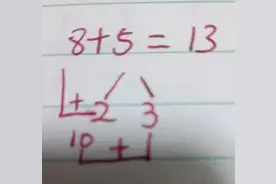 8+5=13
+2 3
10 +